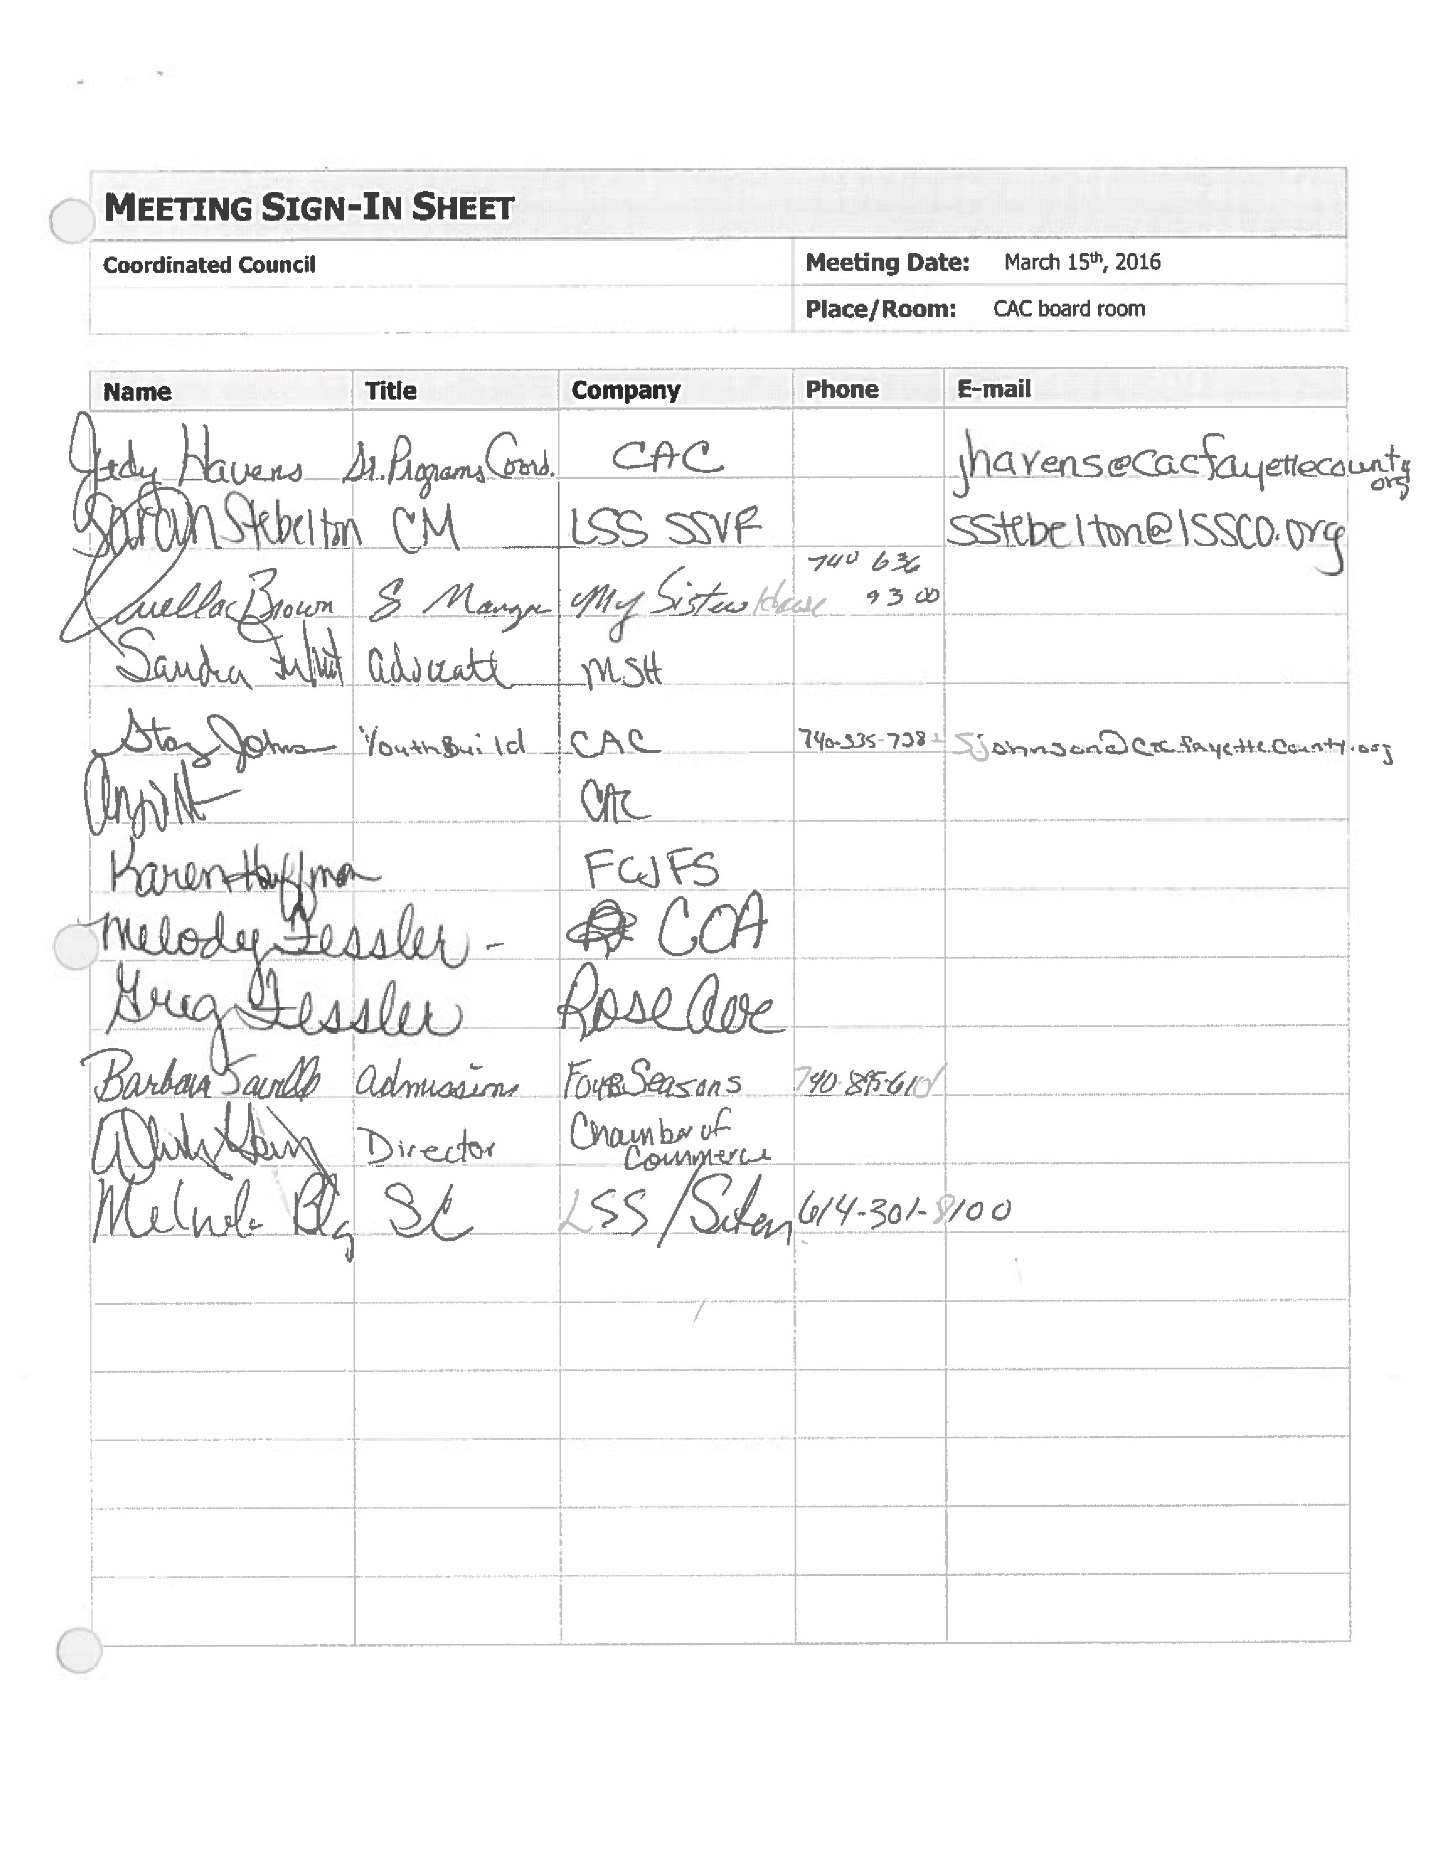 MEETING SIGN-IN SHEET
Coordinated Council
Meeting Date: March 15th, 2016
Place/Room: CAC board room
Name Title Company Phone E-mail
Judy Havens Sr. Programs Coord. CAC jhavens@cacfayettecounty
org
Sarah Stebelton CM LSS SSVF sstebelton@lssco.org
740 636
Brown My Sisters House 9300
Sandra advocate MSH
Johnson YouthBuild CAC 740-335-7282 sjohnson@cacfayettecounty.org
CAC
Karen Huffman FCJFS
Melody Fessler - COA
Greg Fessler Rose Ave
Barbara admissions Four Seasons 740-895-6101
Director Chamber of
Commerce
SC LSS/ 614-301-8100